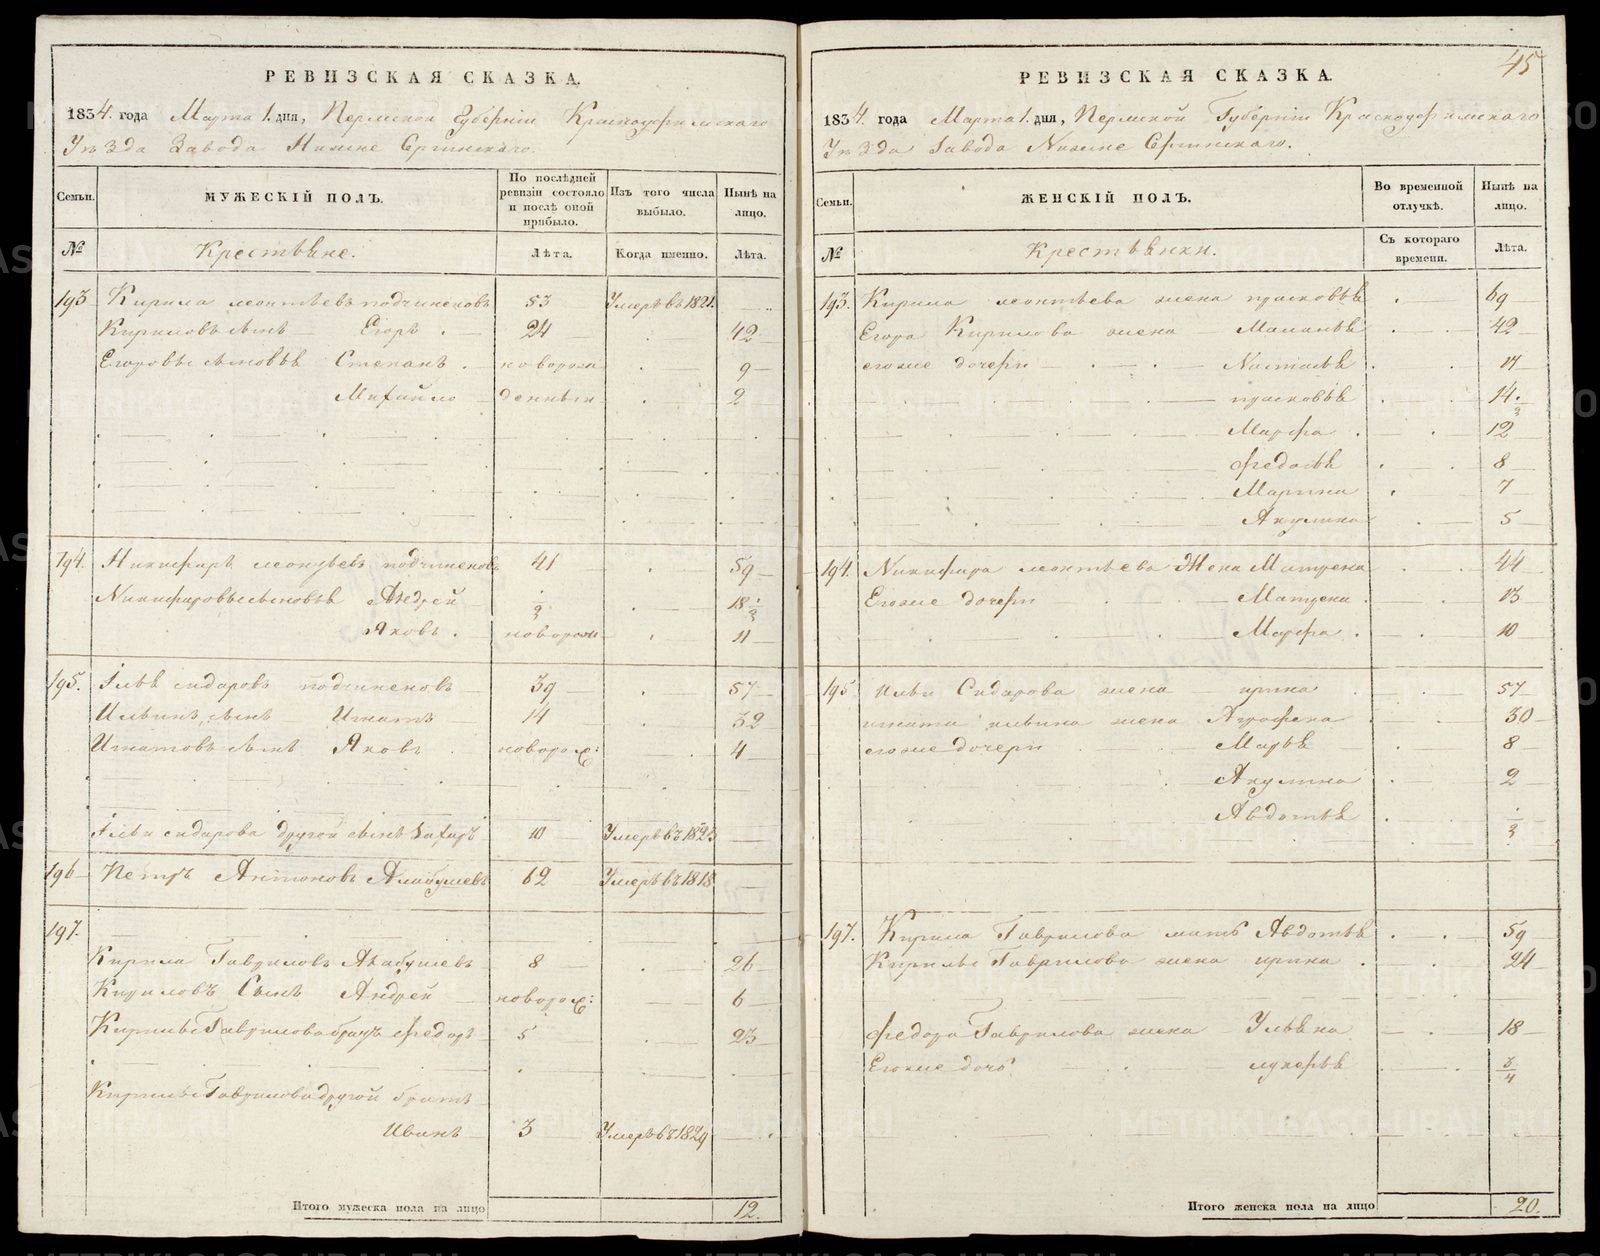 РЕВИЗСКАЯ СКАЗКА.
1834. года Марта 1. дня, Пермской Губерніи Красноуфимскаго
Уѣзда Завода Нижне Сргинскаго.
Семьи. МУЖЕСКІЙ ПОЛЪ. По послѣдней ревизіи состояло и послѣ оной прибыло. Изъ того числа выбыло. Нынѣ на лицо.
№ Крестьяне. Лѣта. Когда именно. Лѣта.
193 Кирила леонтьевъ подчиненовъ 53 Умерѣ въ 1821.
Кириловъ сынъ Егоръ. 24 42
Егоровы сыновья Степанъ. новорож 9
Михайло денныи 2
194. Никифаръ леонтьевъ подчиненовъ 41 59
Никифаровы сыновья Андрей 1/2 18 1/2
Яковъ. новорож 11
195. Илья сидаровъ подчиненовъ 39 57
Ильинъ сынъ Игнатъ 14 32
Игнатовъ сынъ Яковъ новорож: 4
Ильи сидарова другой сынъ Захаръ 10 Умерѣ въ 1825
196 Петръ Антоновъ Алабушевъ 62 Умерѣ въ 1818
197.
Кирила Гавриловъ Алабушевъ 8 26
Кириловъ Сынъ Андрей новорож: 6
Кирилы Гаврилова братъ федоръ 5 23
Кирилы Гаврилова другой братъ
Иванъ 3 Умерѣ въ 1829
Итого мужеска пола на лицо 12.
45
РЕВИЗСКАЯ СКАЗКА.
1834. года Марта 1. дня, Пермской Губерніи Красноуфимскаго
Уѣзда Завода Нижне Сргинскаго.
Семьи. ЖЕНСКІЙ ПОЛЪ. Во временной отлучкѣ. Нынѣ на лицо.
№ Крестьянки. Съ котораго времени. Лѣта.
193. Кирила леонтьева жена прасковья 69
Егора Кирилова жена Маланья 42
егоже дочери Настасья 17
прасковья 14 1/2
Марфа. 12
федосья 8
Марина 7
Акулина 5
194. Никифара леонтьева Жена Матрена 44
Егоже дочери Матрена. 13
Марфа. 10
195 ильи Сидарова жена ирина 57
игната ильина жена Аграфена 30
егоже дочери Марья 8
Акулина 2
Авдотья 1/2
197. Кирила Гаврилова мать Авдотья 59
Кирилы Гаврилова жена ирина. 24
федора Гаврилова жена Ульяна 18
Егоже дочь лукерья 3/4
Итого женска пола на лицо 20.
METRIKI.GASO-URAL.RU